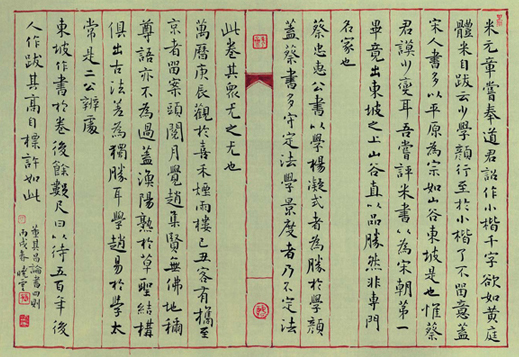 米元章嘗奉道君詔作小楷千字欲如黃庭
體米自跋云少學顏行至於小楷了不留意蓋
宋人書多以平原為宗如山谷東坡是也惟蔡
君謨少變耳吾嘗評米書以為宋朝第一
畢竟出東坡之上山谷直以品勝然非專門
名家也
蔡忠惠公書以學楊凝式者為勝於學顏
蓋蔡書多守定法學景度者乃不定法
此卷其眾尤之尤也
萬曆庚辰觀於嘉禾煙雨樓己丑客有攜至
京者留案頭閱月覺趙集賢無佛地稱
尊語亦不為過蓋漁陽熟於草聖結構
俱出古法差為獨勝耳學趙易於學太
常是二公辨處
東坡作書於卷後餘數尺曰以待五百年後
人作跋其高自標許如此
董其昌論書四則
丙戌春曉雲